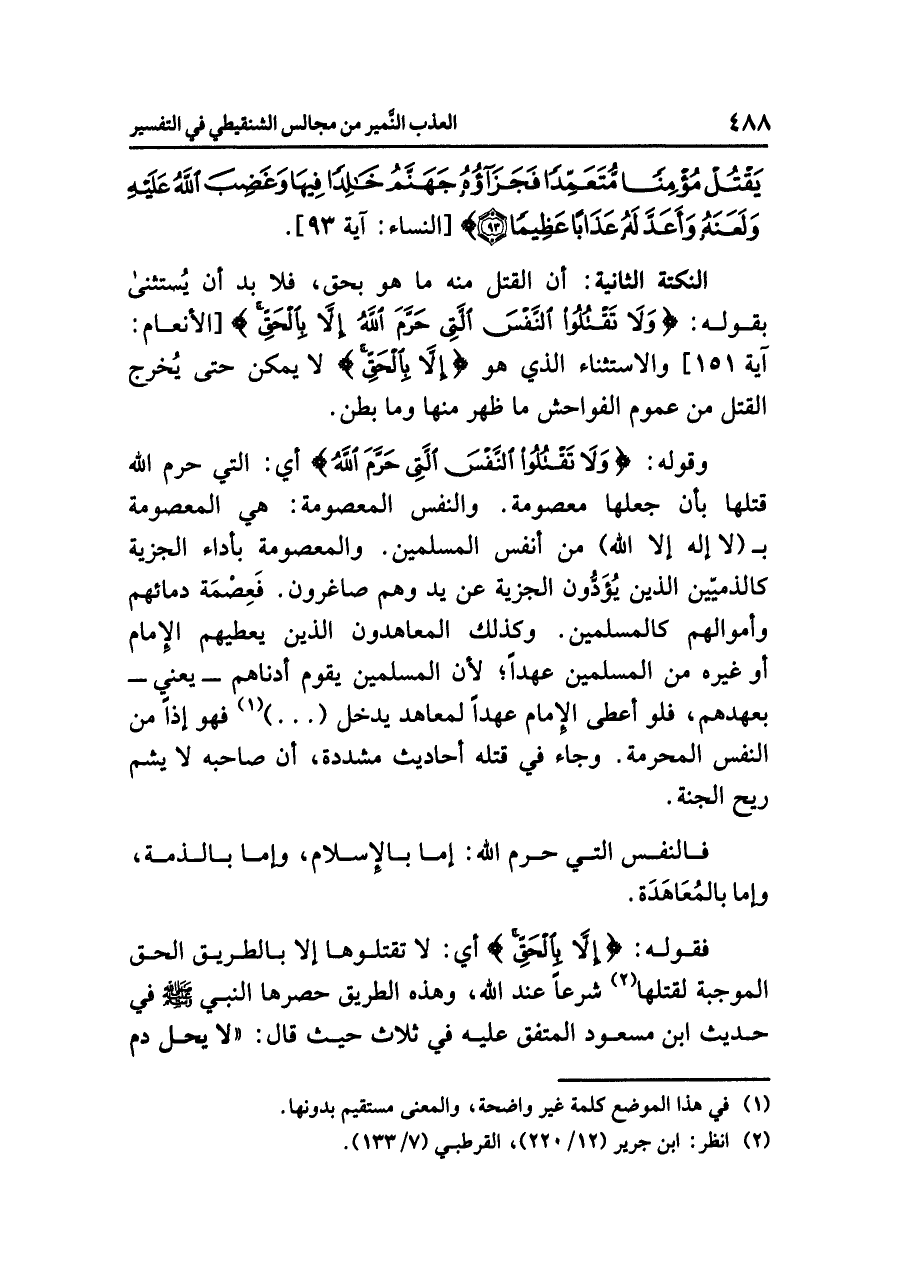 ٤٨٨ العذب النَّمير من مجالس الشنقيطي في التفسير
يَقْتُلْ مُؤْمِنًا مُّتَعَمِّدًا فَجَزَآؤُهُۥ جَهَنَّمُ خَٰلِدًا فِيهَا وَغَضِبَ ٱللَّهُ عَلَيْهِ
وَلَعَنَهُۥ وَأَعَدَّ لَهُۥ عَذَابًا عَظِيمًا ٩٣﴾ [النساء: آية ٩٣].
النكتة الثانية: أن القتل منه ما هو بحق، فلا بد أن يُستثنىٰ
بقوله: ﴿وَلَا تَقْتُلُوا۟ ٱلنَّفْسَ ٱلَّتِى حَرَّمَ ٱللَّهُ إِلَّا بِٱلْحَقِّ ۚ﴾ [الأنعام:
آية ١٥١] والاستثناء الذي هو ﴿إِلَّا بِٱلْحَقِّ ۚ﴾ لا يمكن حتى يُخرج
القتل من عموم الفواحش ما ظهر منها وما بطن.
وقوله: ﴿وَلَا تَقْتُلُوا۟ ٱلنَّفْسَ ٱلَّتِى حَرَّمَ ٱللَّهُ﴾ أي: التي حرم الله
قتلها بأن جعلها معصومة. والنفس المعصومة: هي المعصومة
بـ (لا إله إلا الله) من أنفس المسلمين. والمعصومة بأداء الجزية
كالذميّين الذين يُؤَدُّون الجزية عن يد وهم صاغرون. فَعِصْمَة دمائهم
وأموالهم كالمسلمين. وكذلك المعاهدون الذين يعطيهم الإمام
أو غيره من المسلمين عهداً؛ لأن المسلمين يقوم أدناهم ــ يعني ــ
بعهدهم، فلو أعطى الإمام عهداً لمعاهد يدخل (...)(١) فهو إذاً من
النفس المحرمة. وجاء في قتله أحاديث مشددة، أن صاحبه لا يشم
ريح الجنة.
فالنفس التي حرم الله: إما بالإسلام، وإما بالذمة،
وإما بالمُعَاهَدَة.
فقوله: ﴿إِلَّا بِٱلْحَقِّ ۚ﴾ أي: لا تقتلوها إلا بالطريق الحق
الموجبة لقتلها(٢) شرعاً عند الله، وهذه الطريق حصرها النبي ﷺ في
حديث ابن مسعود المتفق عليه في ثلاث حيث قال: «لا يحل دم
(١) في هذا الموضع كلمة غير واضحة، والمعنى مستقيم بدونها.
(٢) انظر: ابن جرير (١٢/ ٢٢٠)، القرطبي (٧/ ١٣٣).